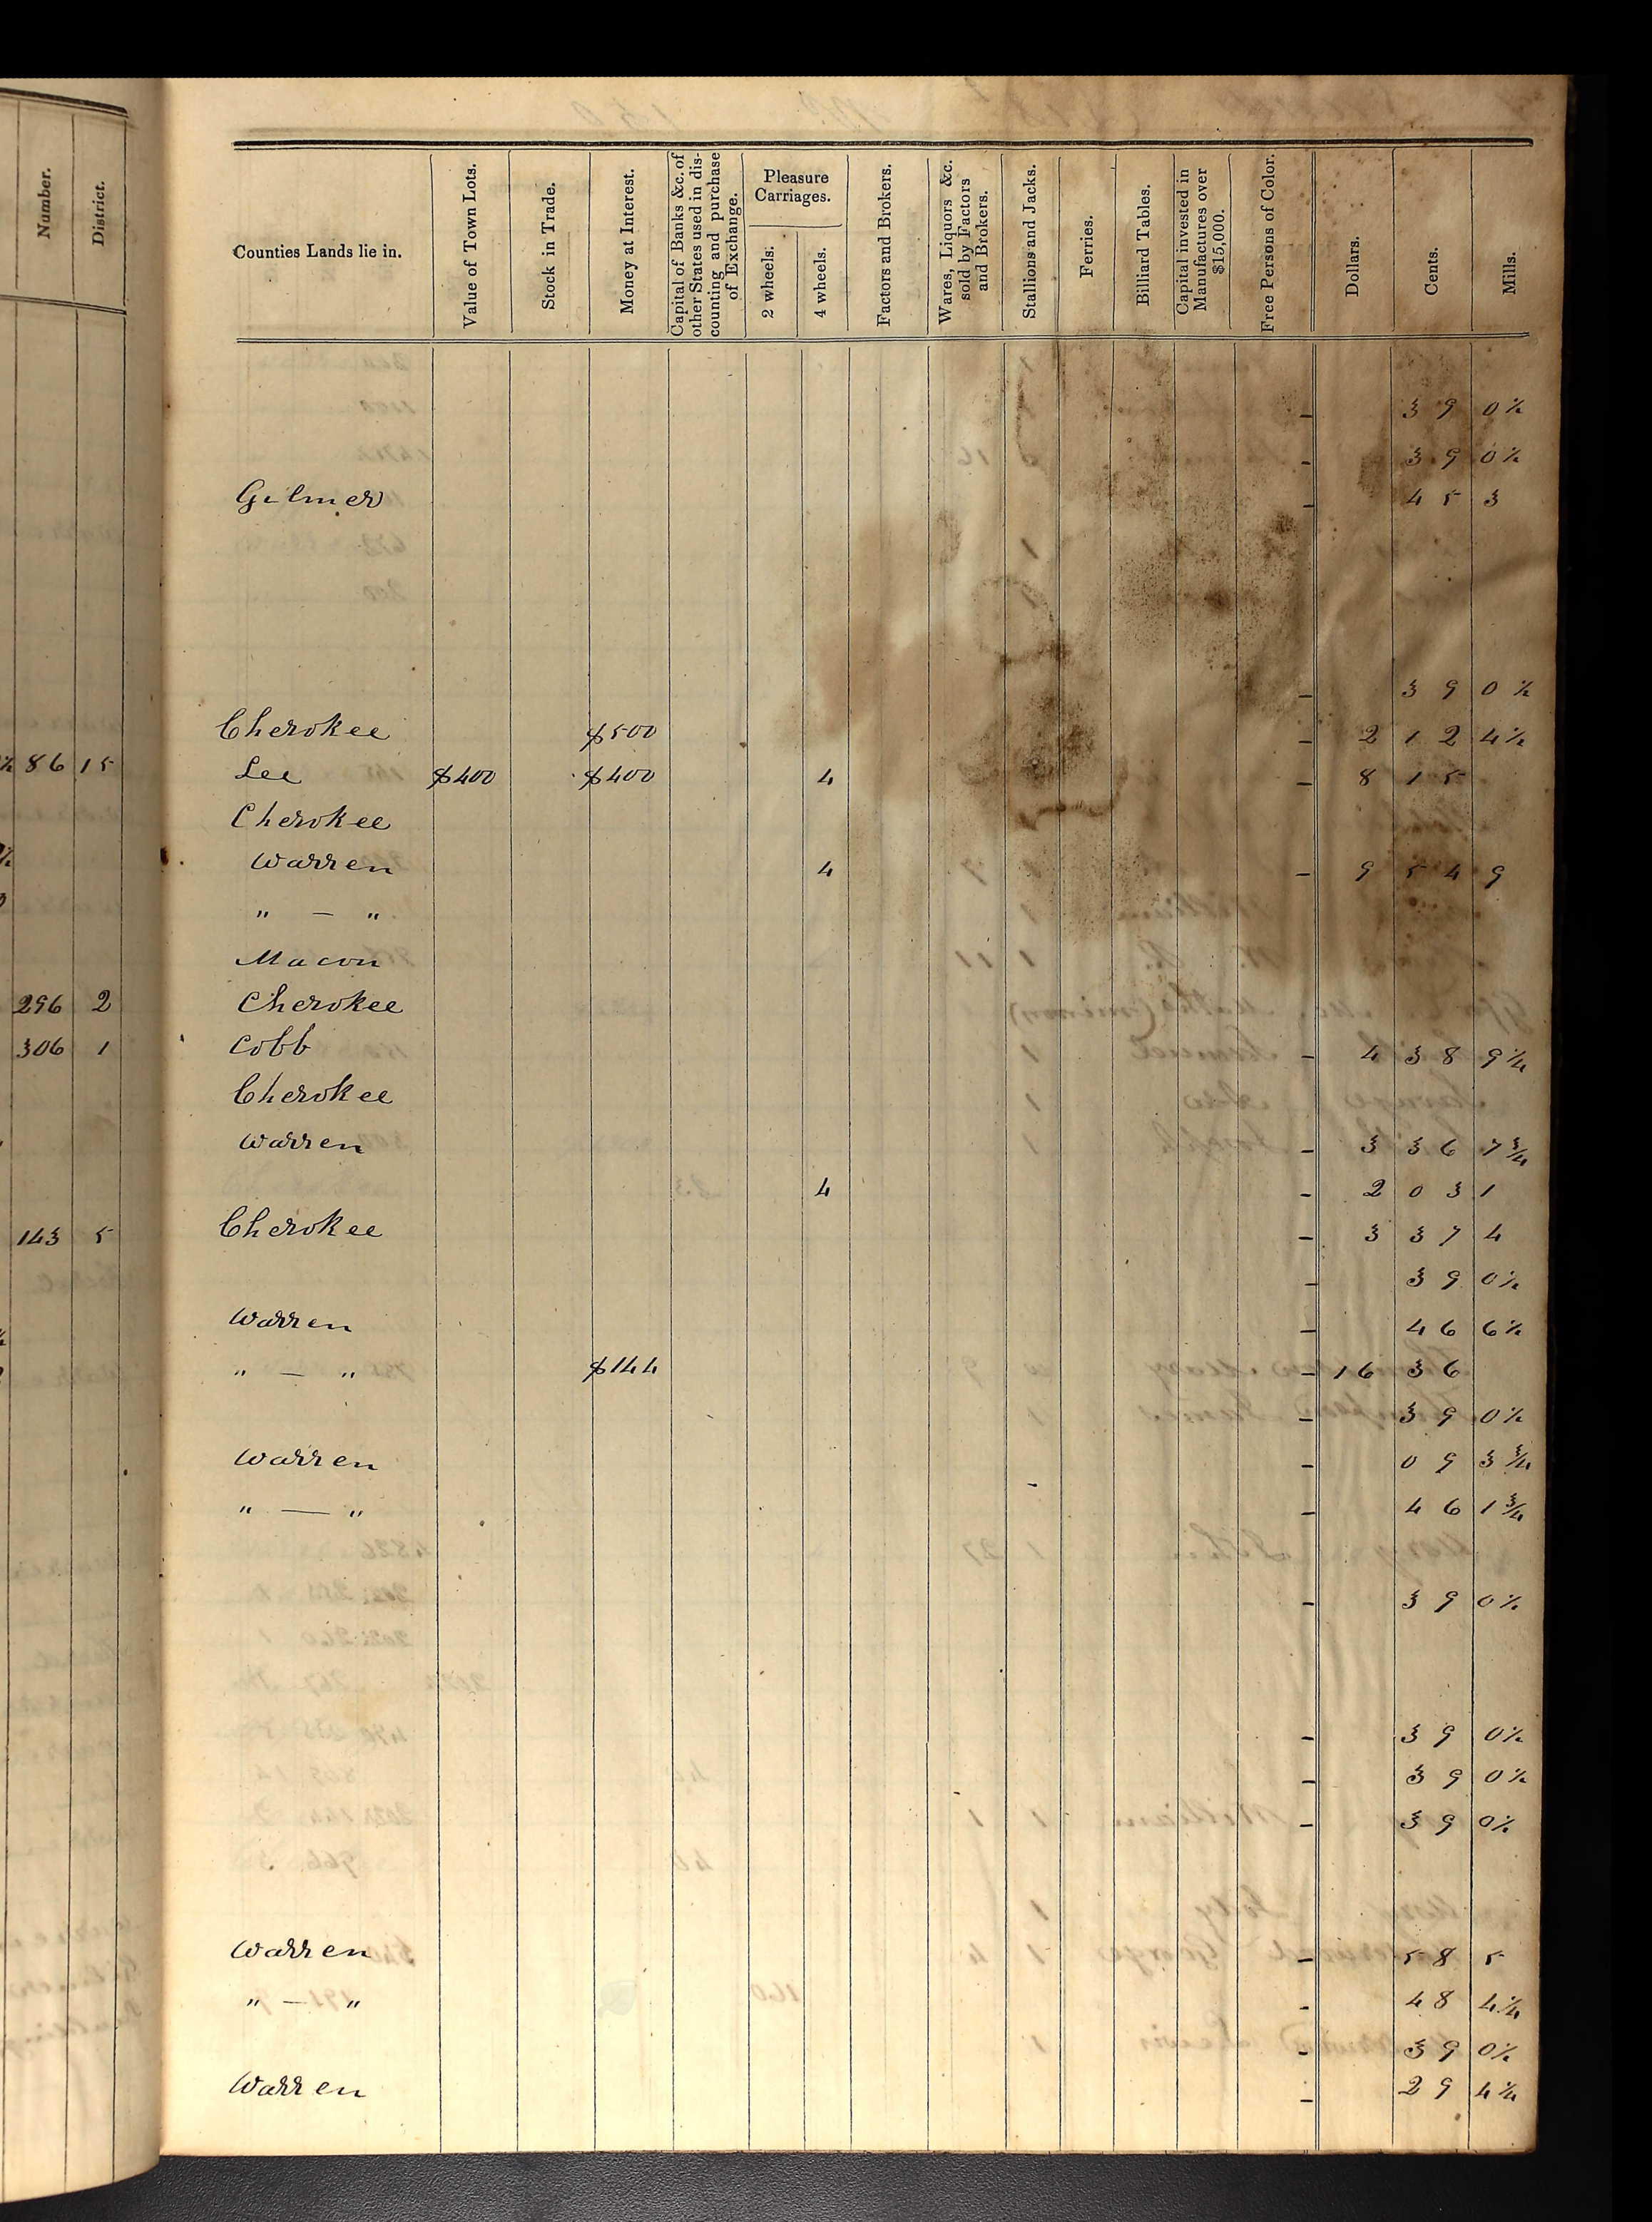 Number. District.
Counties Lands lie in.
Value of Town Lots.
Stock in Trade.
Money at Interest.
Capital of Banks &c. of other States used in discounting and purchase of Exchange.
Pleasure Carriages.
2 wheels.
4 wheels.
Factors and Brokers.
Wares, Liquors &c. sold by Factors and Brokers.
Stallions and Jacks.
Ferries.
Billiard Tables.
Capital invested in Manufactures over $15,000.
Free Persons of Color.
Dollars.
Cents.
Mills.
- 3 9 0½
- 3 9 0½
Gilmer - 4 5 3
- 3 9 0½
Cherokee $500 - 2 1 2 4½
86 15 Lee $400 $400 4 - 8 1 5
Cherokee
Warren 4 - 9 5 4 9
" — "
Macon
296 2 Cherokee
306 1 Cobb - 4 3 8 9¼
Cherokee
Warren - 3 3 6 7¾
4 - 2 0 3 1
143 5 Cherokee - 3 3 7 4
- 3 9 0½
Warren - 4 6 6½
" — " $144 - 16 3 6
- 3 9 0½
Warren - 0 9 3¾
" — " - 4 6 1¾
- 3 9 0½
- 3 9 0½
- 3 9 0½
- 3 9 0½
Warren - 5 8 5
" — " - 4 8 4¼
- 3 9 0½
Warren - 2 9 4¼